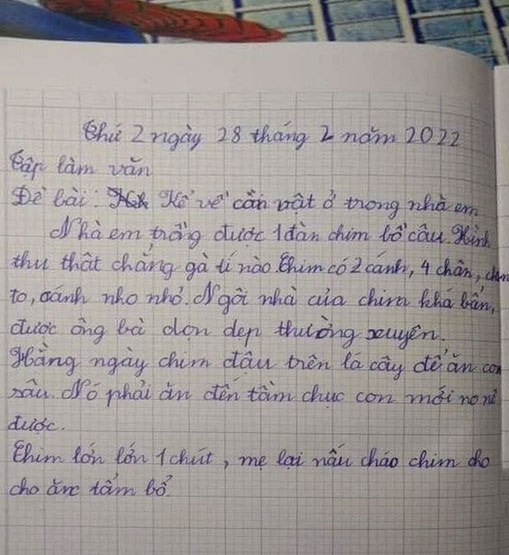 Thứ 2 ngày 28 tháng 2 năm 2022
Tập làm văn
Đề bài: Kể về con vật ở trong nhà em
Nhà em trồng được 1 đàn chim bồ câu. Hình
thu thật chẳng gà tí nào. Chim có 2 cánh, 4 chân, chân
to, cánh nho nhỏ. Ngôi nhà của chim khá bẩn,
được ông bà dọn dẹp thường xuyên.
Hằng ngày chim đậu trên lá cây để ăn con
sâu. Nó phải ăn đến tầm chục con mới no nê
được.
Chim lớn lớn 1 chút, mẹ lại nấu cháo chim cho
cho ăn tẩm bổ.